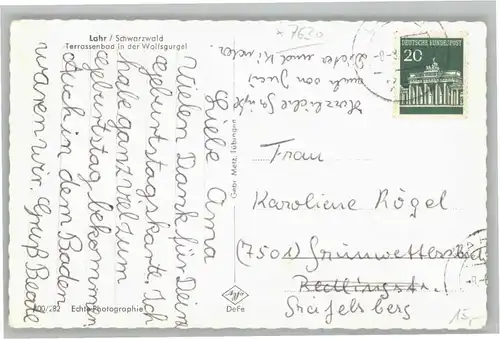 Lahr / Schwarzwald
Terrassenbad in der Wolfsgurgel
Liebe Oma
Vielen Dank für Deine
Geburtstagskarte. Ich
habe ganz viel zum
Geburtstag bekommen
Auch in dem Baden
waren wir. Gruß Beate
Herzliche Grüße
auch von
und Kinder
7620
Gebr. Metz, Tübingen
DEUTSCHE BUNDESPOST
20
Frau
Karoline Rögel
(7501) Grünwettersb
Reutlingstr.
Greifelsberg
15,-
Agfa
DeFe
100/282 Echte Photographie